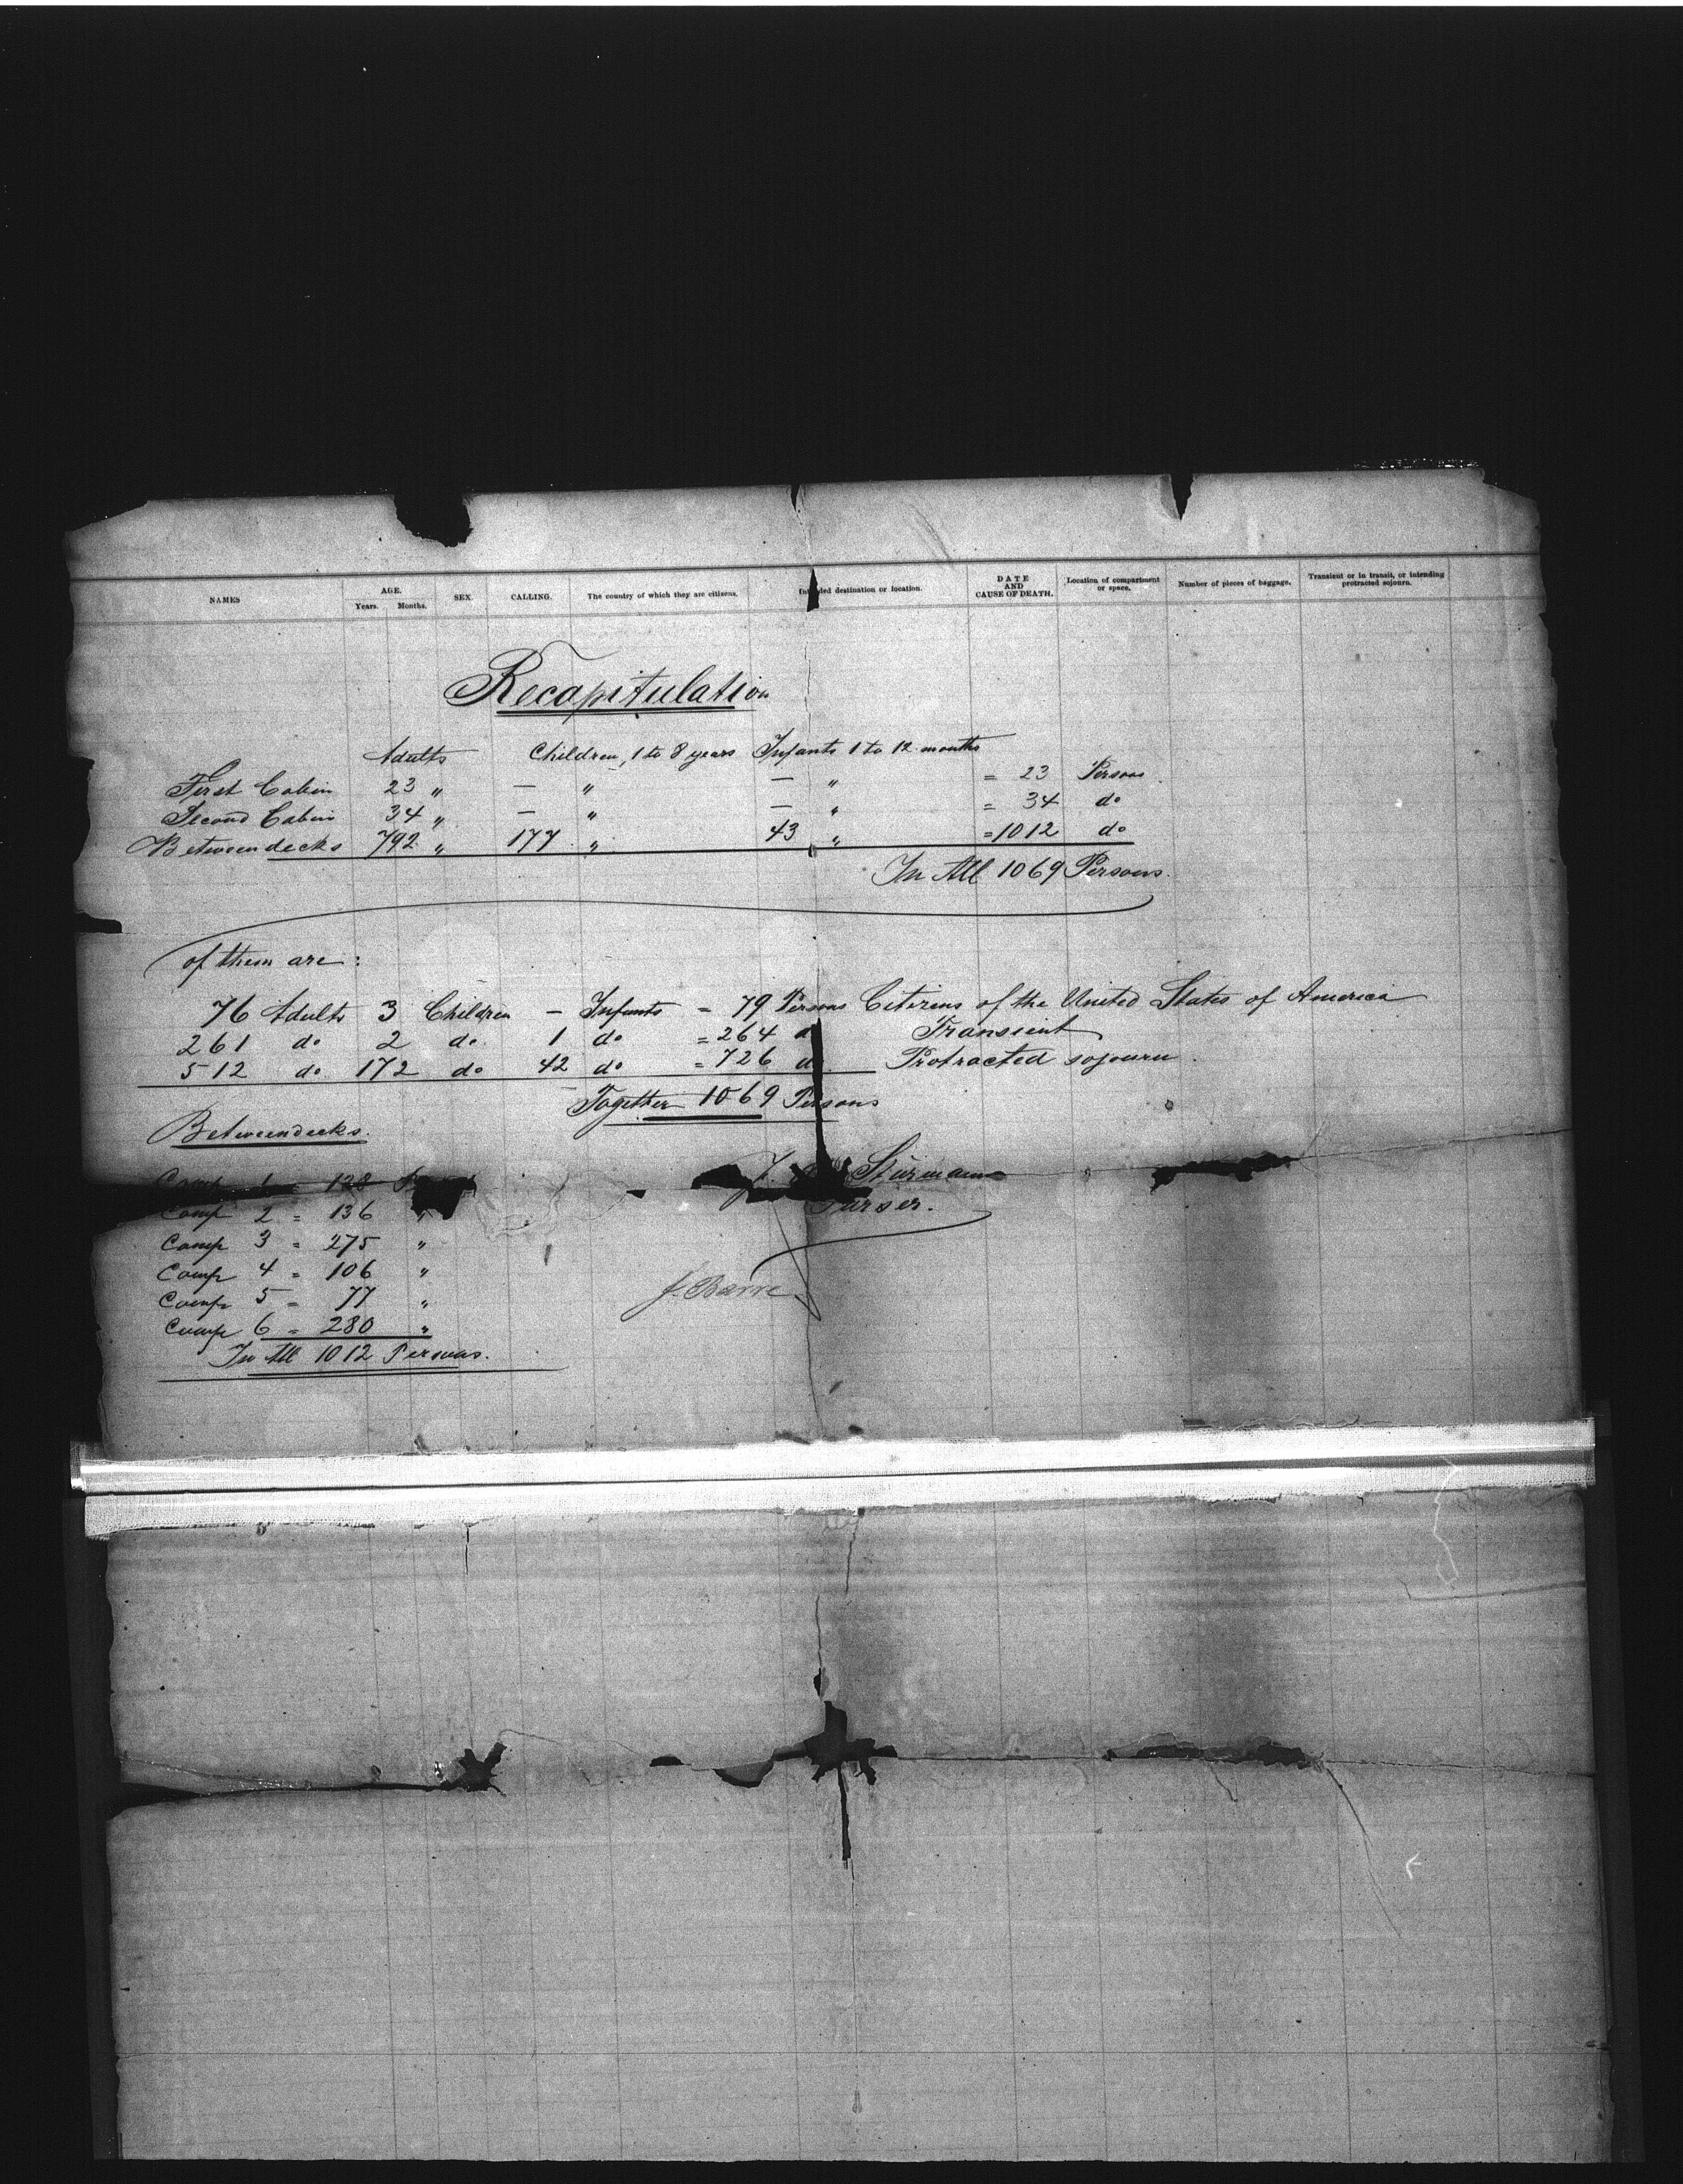 NAMES AGE. Years. Months. SEX. CALLING. The country of which they are citizens. Intended destination or location. DATE AND CAUSE OF DEATH. Location of compartment or space. Number of pieces of baggage. Transient or in transit, or intending protracted sojourn.
Recapitulation
Adults Children, 1 to 8 years Infants 1 to 12 months
First Cabin 23 " — " — " = 23 Persons
Second Cabin 34 " — " — " = 34 do
Betweendecks 792 " 177 " 43 " = 1012 do
In All 1069 Persons.
of them are:
76 Adults 3 Children — Infants = 79 Persons Citizens of the United States of America
261 do 2 do. 1 do = 264 Transient
512 do. 172 do 42 do = 726 Protracted sojourn.
Together 1069 Persons
Betweendecks.
Comp 1 = 138
Comp 2 = 136 "
Comp 3 = 275 "
Comp 4 = 106 "
Comp 5 = 77 "
Comp 6 = 280 "
In All 1012 Persons.
Stürmann
Purser.
J. Barre